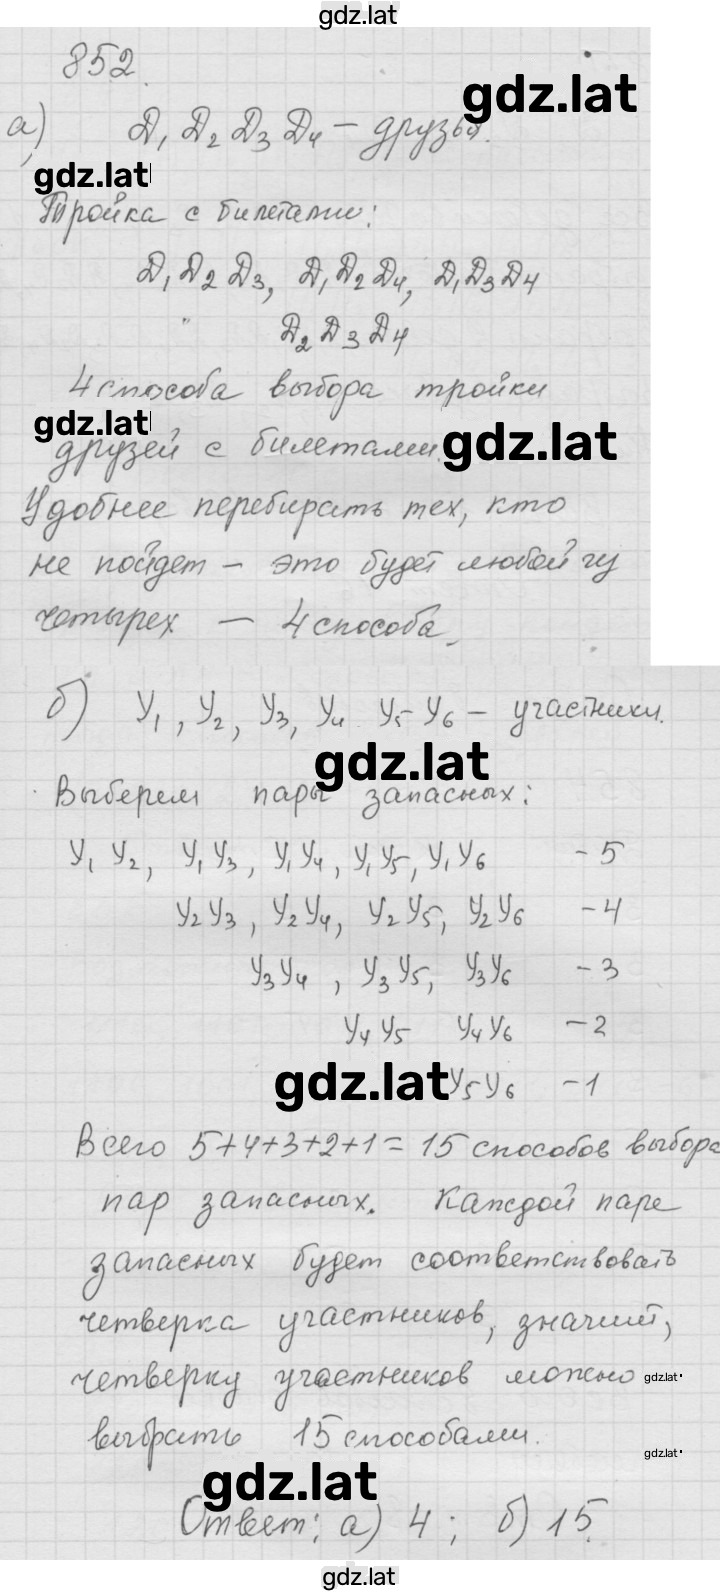 gdz.lat
852.
gdz.lat
а) Д₁ Д₂ Д₃ Д₄ – друзья.
gdz.lat
Тройка с билетами:
Д₁Д₂Д₃, Д₁Д₂Д₄, Д₁Д₃Д₄
Д₂Д₃Д₄
4 способа выбора тройки
gdz.lat
друзей с билетами.
gdz.lat
Удобнее перебирать тех, кто
не пойдет – это будет любой из
четырех – 4 способа.
б) У₁, У₂, У₃, У₄ У₅ У₆ – участники.
gdz.lat
Выберем пары запасных:
У₁У₂, У₁У₃, У₁У₄, У₁У₅, У₁У₆ – 5
У₂У₃, У₂У₄, У₂У₅, У₂У₆ – 4
У₃У₄, У₃У₅, У₃У₆ – 3
У₄У₅ У₄У₆ – 2
gdz.lat
У₅У₆ – 1
Всего 5+4+3+2+1=15 способов выбора
пар запасных. Каждой паре
запасных будет соответствовать
четверка участников, значит,
четверку участников можно
gdz.lat
выбрать 15 способами.
gdz.lat
gdz.lat
Ответ: а) 4; б) 15.
gdz.lat